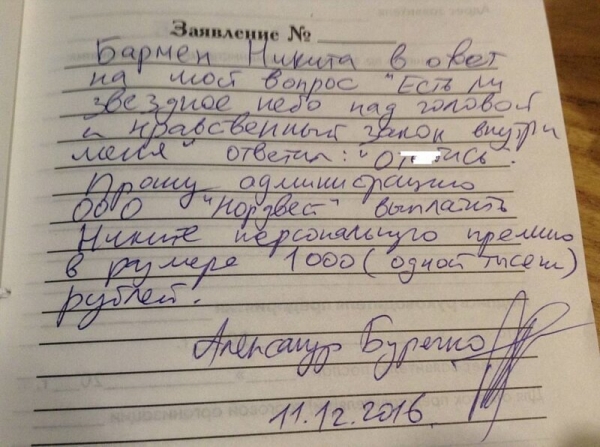 Заявление №
Бармен Никита в овет
на мой вопрос "Есть ли
звездное небо над головой
и нравственный закон внутри
меня" ответил: "От ись".
Прошу администрацию
ООО "Нордвест" выплатить
Никите персональную премию
в румере 1000 (одной тысячи)
рублей.
Александр Буречко
11.12.2016.